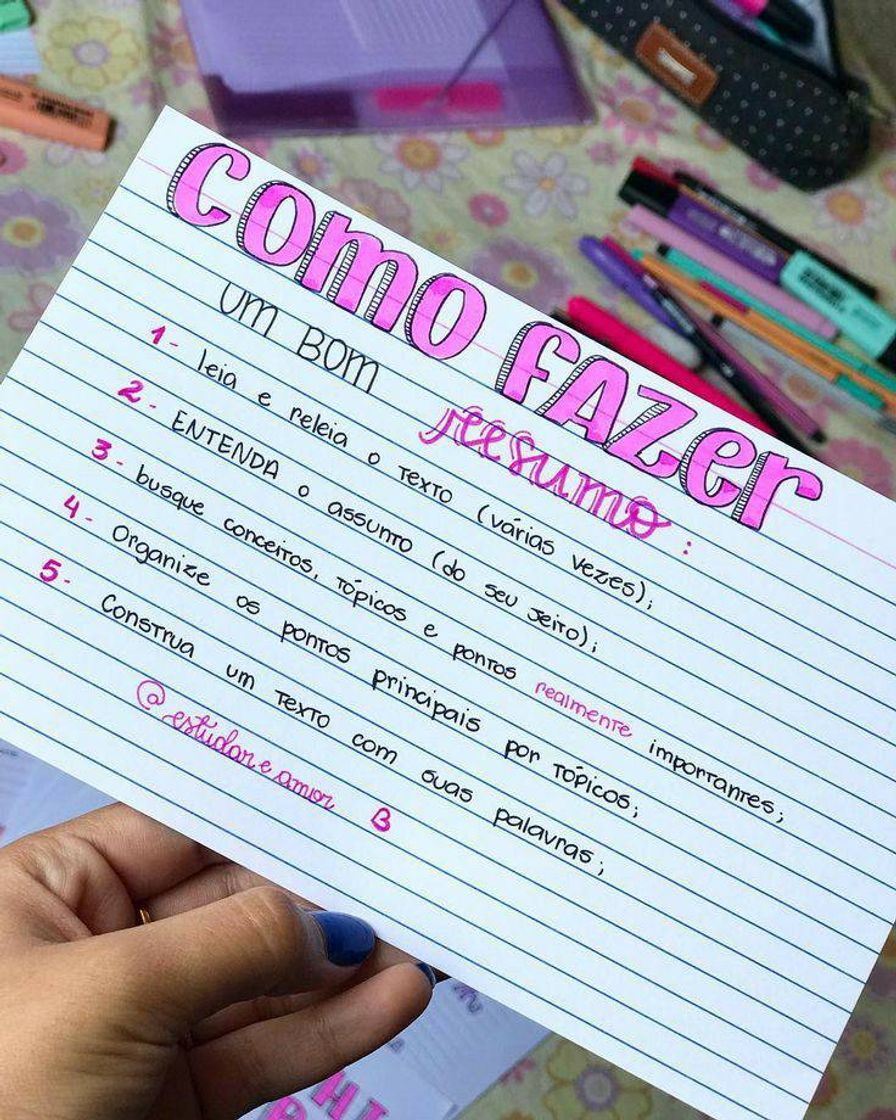 como fazer
um bom
resumo:
1- leia e releia o texto (várias vezes);
2- ENTENDA o assunto (do seu jeito);
3- busque conceitos, tópicos e pontos realmente importantes;
4- Organize os pontos principais por tópicos;
5- Construa um texto com suas palavras;
@estudar e amor B